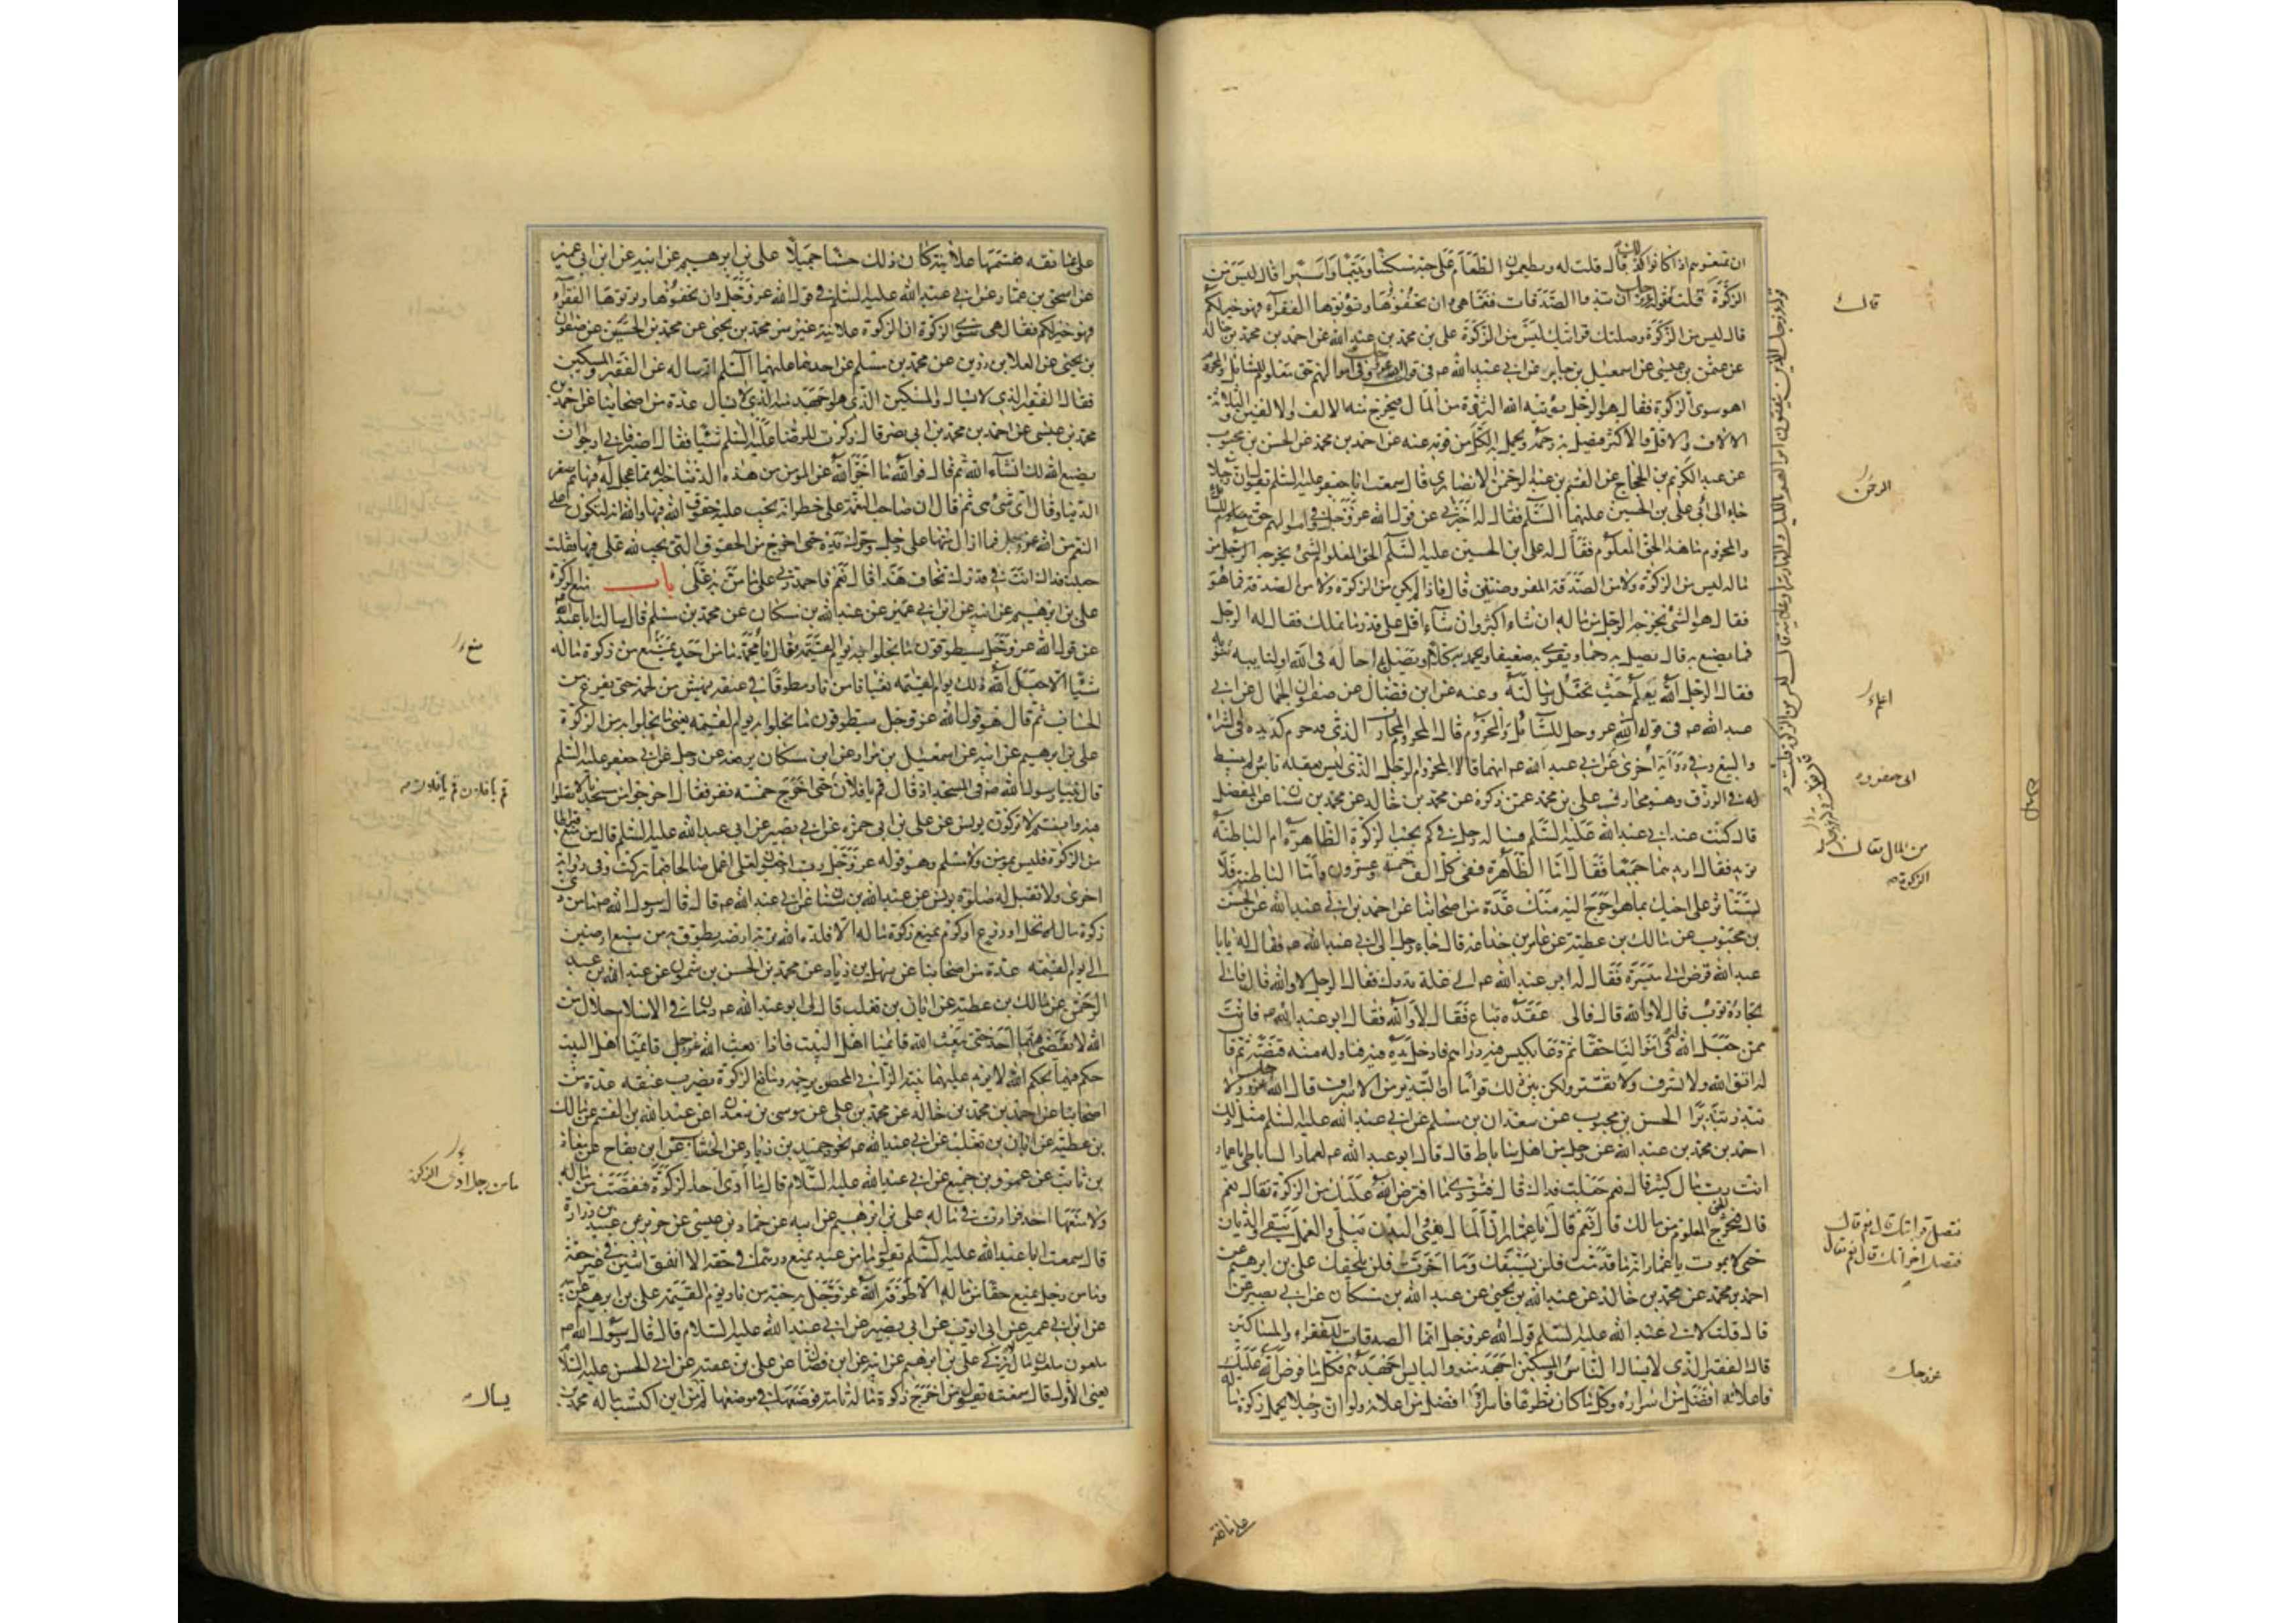 ان تمنعوهم اذا كانوا كذا قال قلت له ويطعمون الطعام على حبه مسكينا ويتيما واسيرا قال ليس من
الزكوة قلت قوله عز وجل ان تبدوا الصدقات فنعما هي وان تخفوها وتؤتوها الفقراء فهو خير لكم
قال ليس من الزكوة وصلتك قرابتك ليس من الزكوة علي بن محمد بن عبد الله عن احمد بن محمد بن خالد
عن عثمن بن عيسى عن اسمعيل بن جابر عن ابي عبد الله عه في قول الله عز وجل وفي اموالهم حق معلوم للسائل والمحروم
اهو سوى الزكوة فقال هو الرجل يؤتيه الله الثروة من المال فيخرج منه الالف والالفين والثلاثة
الالاف والاقل والاكثر فيصل به رحمه ويحمل به الكل من قومه عنه عن احمد بن محمد عن الحسن بن محبوب
عن عبد الكريم بن الحجاج عن القسم بن عبد الرحمن الانصاري قال سمعت ابا جعفر عليه السلم يقول ان رجلا
جاء الى ابي علي بن الحسين عليهما السلم فقال له اخبرني عن قول الله عز وجل في اموالهم حق معلوم للسائل
والمحروم ما هذا الحق المعلوم فقال له علي بن الحسين عليه السلم الحق المعلوم الشئ يخرجه الرجل من
ماله ليس من الزكوة ولا من الصدقة المفروضتين قال فاذا لم يكن من الزكوة ولا من الصدقة فما هو
فقال هو الشئ يخرجه الرجل من ماله ان شاء اكثر وان شاء اقل على قدر ما يملك فقال له الرجل
فما يصنع به قال يصل به رحما ويقوي به ضعيفا ويحمل به كلا او يصل به اخا له في الله او لنائبة تنوبه
فقال الرجل الله يعلم حيث يجعل رسالته وعنه عن ابن فضال عن صفوان الجمال عن ابي
عبد الله عه في قوله الله عز وجل للسائل والمحروم قال المحروم المحارف الذي قد حرم كد يده في الشراء
والبيع وفي رواية اخرى عن ابي عبد الله عه انهما قالا المحروم الرجل الذي ليس بعقله باس لم يبسط
له في الرزق وهو محارف علي بن محمد عمن ذكره عن محمد بن خالد عن محمد بن سنان عن المفضل
قال كنت عند ابي عبد الله عليه السلم فساله رجل في كم يجب الزكوة الظاهرة ام الباطنة
تريد فقال اريدهما جميعا فقال اما الظاهرة ففي كل الف خمسة وعشرون واما الباطنة فلا
تستاثر على اخيك بما هو احوج اليه منك عدة من اصحابنا عن احمد بن ابي عبد الله عن الحسن
بن محبوب عن مالك بن عطية عن عامر بن جذاعة قال جاء رجل الى ابي عبد الله عه فقال له يا ابا
عبد الله قرض الى ميسرة فقال له ابو عبد الله عه الى غلة تدرك فقال الرجل لا والله قال فالى
تجارة تؤب قال لا والله قال فالى عقدة تباع فقال لا والله فقال ابو عبد الله عه فانت
ممن جعل الله له في اموالنا حقا ثم دعا بكيس فيه دراهم فادخل يده فيه فناوله منه قبضة ثم قال
له اتق الله ولا تسرف ولا تقتر ولكن بين ذلك قواما ان التبذير من الاسراف قال الله عز وجل ولا
تبذر تبذيرا الحسن بن محبوب عن سعدان بن مسلم عن ابي عبد الله عليه السلم مثل ذلك
احمد بن محمد بن عبد الله عن رجل من اهل ساباط قال قال ابو عبد الله عه لعمار الساباطي يا عمار
انت رب مال كثير قال نعم جعلت فداك قال فتؤدي ما افترض الله عليك من الزكوة فقال نعم
قال فتخرج الحق المعلوم من مالك قال نعم قال يا عمار ان المال يفنى والبدن يبلى والعمل يبقى والديان
حي لا يموت يا عمار انه ما قدمت فلن يسبقك وما اخرت فلن يلحقك علي بن ابراهيم عن
احمد بن محمد عن محمد بن خالد عن عبد الله بن يحيى عن عبد الله بن مسكان عن ابي بصير
قال قلت لابي عبد الله عليه السلم قول الله عز وجل انما الصدقات للفقراء والمساكين
قال الفقير الذي لا يسال الناس والمسكين اجهد منه والبايس اجهدهم فكل ما فرض الله عليك
فاعلانه افضل من اسراره وكل ما كان تطوعا فاسراره افضل من اعلانه ولو ان رجلا يحمل زكوة ماله
قال
الرحمن
اعلم
ابي جعفر و
من المال فقال
الزكوة
فتصل قرابتك قال نعم قال
فتصل اخوانك قال نعم فقال
عز وجل
على عاتقه
على عاتقه فقسمها علانية كان ذلك حسنا جميلا علي بن ابرهيم عن ابيه عن ابن ابي عمير
عن اسحق بن عمار عن ابي عبد الله عليه السلم في قول الله عز وجل وان تخفوها وتؤتوها الفقراء
فهو خير لكم فقال هي سوى الزكوة ان الزكوة علانية غير سر محمد بن يحيى عن محمد بن الحسين عن صفوان
بن يحيى عن العلا بن رزين عن محمد بن مسلم عن احدهما عليهما السلم انه ساله عن الفقير والمسكين
فقال الفقير الذي لا يسال والمسكين الذي هو اجهد منه الذي يسال عدة من اصحابنا عن احمد بن
محمد بن عيسى عن احمد بن محمد بن ابي نصر قال ذكرت للرضا عليه السلم شيئا فقال اصبر فاني ارجو ان
يصنع الله لك انشاء الله ثم قال فوالله ما اخر الله عن المؤمن من هذه الدنيا خير له مما عجل له فيها ثم صغر
الدنيا وقال اي شئ هي ثم قال ان صاحب النعمة على خطر انه يجب عليه حقوق الله فيها والله انه لتكون علي
النعم من الله عز وجل فما ازال منها على وجل وحرك يده حتى اخرج من الحقوق التي يجب لله علي فيها فقلت
جعلت فداك انت في قدرك تخاف هذا قال نعم فاحمد ربي على ما من به علي باب منع الزكوة
علي بن ابرهيم عن ابيه عن ابن ابي عمير عن عبد الله بن مسكان عن محمد بن مسلم قال سالت ابا عبد الله عه
عن قول الله عز وجل سيطوقون ما بخلوا به يوم القيمة فقال يا محمد ما من احد يمنع من زكوة ماله
شيئا الا جعل الله ذلك يوم القيمة ثعبانا من نار مطوقا في عنقه ينهش من لحمه حتى يفرغ من
الحساب ثم قال هو قول الله عز وجل سيطوقون ما بخلوا به يوم القيمة يعني ما بخلوا به من الزكوة
علي بن ابرهيم عن ابيه عن اسمعيل بن مرار عن ابن مسكان يرفعه عن رجل عن ابي جعفر عليه السلم
قال بينا رسول الله صه في المسجد اذ قال قم يا فلان حتى اخرج خمسة نفر فقال اخرجوا من مسجدنا لا تصلوا
فيه وانتم لا تزكون يونس عن علي بن ابي حمزة عن ابي بصير عن ابي عبد الله عليه السلم قال من منع قيراطا
من الزكوة فليس بمؤمن ولا مسلم وهو قوله عز وجل رب ارجعون لعلي اعمل صالحا فيما تركت وفي رواية
اخرى ولا تقبل له صلوة يونس عن عبد الله بن سنان عن ابي عبد الله عه قال قال رسول الله صه ما من ذي
زكوة مال نخل او زرع او كرم يمنع زكوة ماله الا قلده الله تربة ارضه يطوق به من سبع ارضين
الى يوم القيمة عدة من اصحابنا عن سهل بن زياد عن محمد بن الحسن بن شمون عن عبد الله بن عبد
الرحمن عن مالك بن عطية عن ابان بن تغلب قال لي ابو عبد الله عه دمان في الاسلام حلال من
الله لا يقضي فيهما احد حتى يبعث الله قائمنا اهل البيت فاذا بعث الله عز وجل قائمنا اهل البيت
حكم فيهما بحكم الله لا يريد عليهما بينة الزاني المحصن يرجمه ومانع الزكوة يضرب عنقه عدة من
اصحابنا عن احمد بن محمد بن خالد عن محمد بن علي عن موسى بن سعدان عن عبد الله بن القسم عن مالك
بن عطية عن ابان بن تغلب عن ابي عبد الله عه نحوه حميد بن زياد عن الخشاب عن ابن بقاح عن معاذ
بن ثابت عن عمرو بن جميع عن ابي عبد الله عليه السلام قال ما ادى احد الزكوة فنقصت من ماله
ولا منعها احد فزادت في ماله علي بن ابرهيم عن ابيه عن حماد بن عيسى عن حريز عن عبيد بن زرارة
قال سمعت ابا عبد الله عليه السلم يقول ما من عبد يمنع درهما في حقه الا انفق اثنين في غير حقه
وما من رجل يمنع حقا من ماله الا طوقه الله عز وجل به حية من نار يوم القيمة علي بن ابرهيم عن ابيه
عن ابن ابي عمير عن ابي ايوب عن ابي بصير عن ابي عبد الله عليه السلام قال قال رسول الله صه
ملعون ملعون مال لا يزكى علي بن ابرهيم عن ابيه عن ابن فضال عن علي بن عقبة عن ابي الحسن عليه السلم
يعني الاول قال سمعته يقول من اخرج زكوة ماله تامة فوضعها في موضعها لم يسال من اين اكتسب ماله محمد بن
منع
قم يا فلان قم يا فلان
ما من رجل ادى الزكوة
يسال